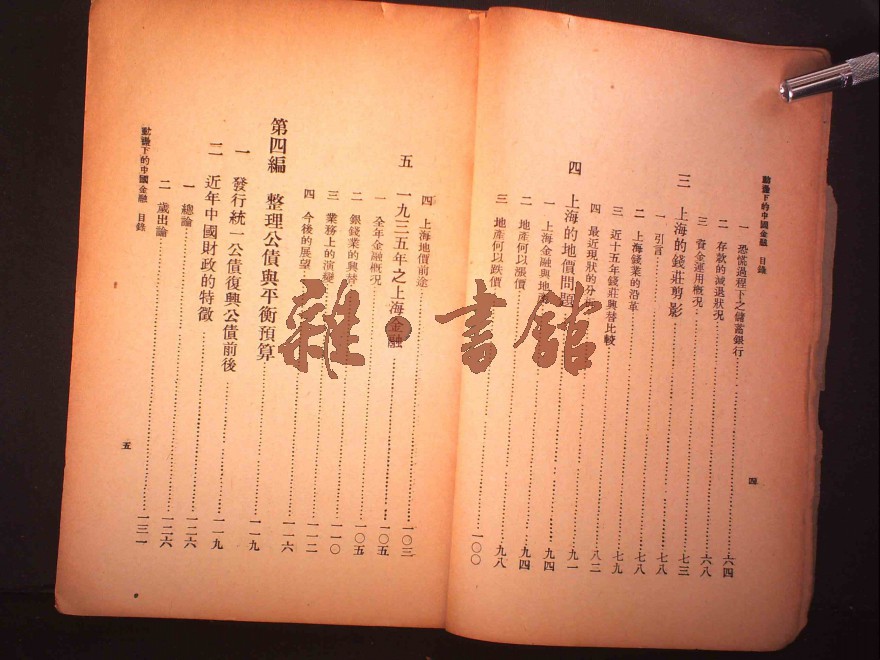 動盪下的中國金融 目錄
一 恐慌過程下之儲蓄銀行……六四
二 存款的減退狀況……六八
三 資金運用概况……七三
三 上海的錢莊剪影……七八
一 引言……七八
二 上海錢業的沿革……七九
三 近十五年錢莊興替比較……八二
四 最近現狀的分……九一
四 上海的地價問題……九四
一 上海金融與地……九四
二 地產何以漲價……九八
三 地產何以跌價……一〇〇
四
四 上海地價前途……一〇三
五 一九三五年之上海金融……一〇五
一 全年金融概况……一〇五
二 銀錢業的興替……一一〇
三 業務上的演變……一一二
四 今後的展望……一一六
第四編 整理公債與平衡預算……一一九
一 發行統一公債復興公債前後……一一九
二 近年中國財政的特徵……一二六
一 總論……一二六
二 歲出論……一三一
動盪下的中國金融 目錄
五
雜·書館